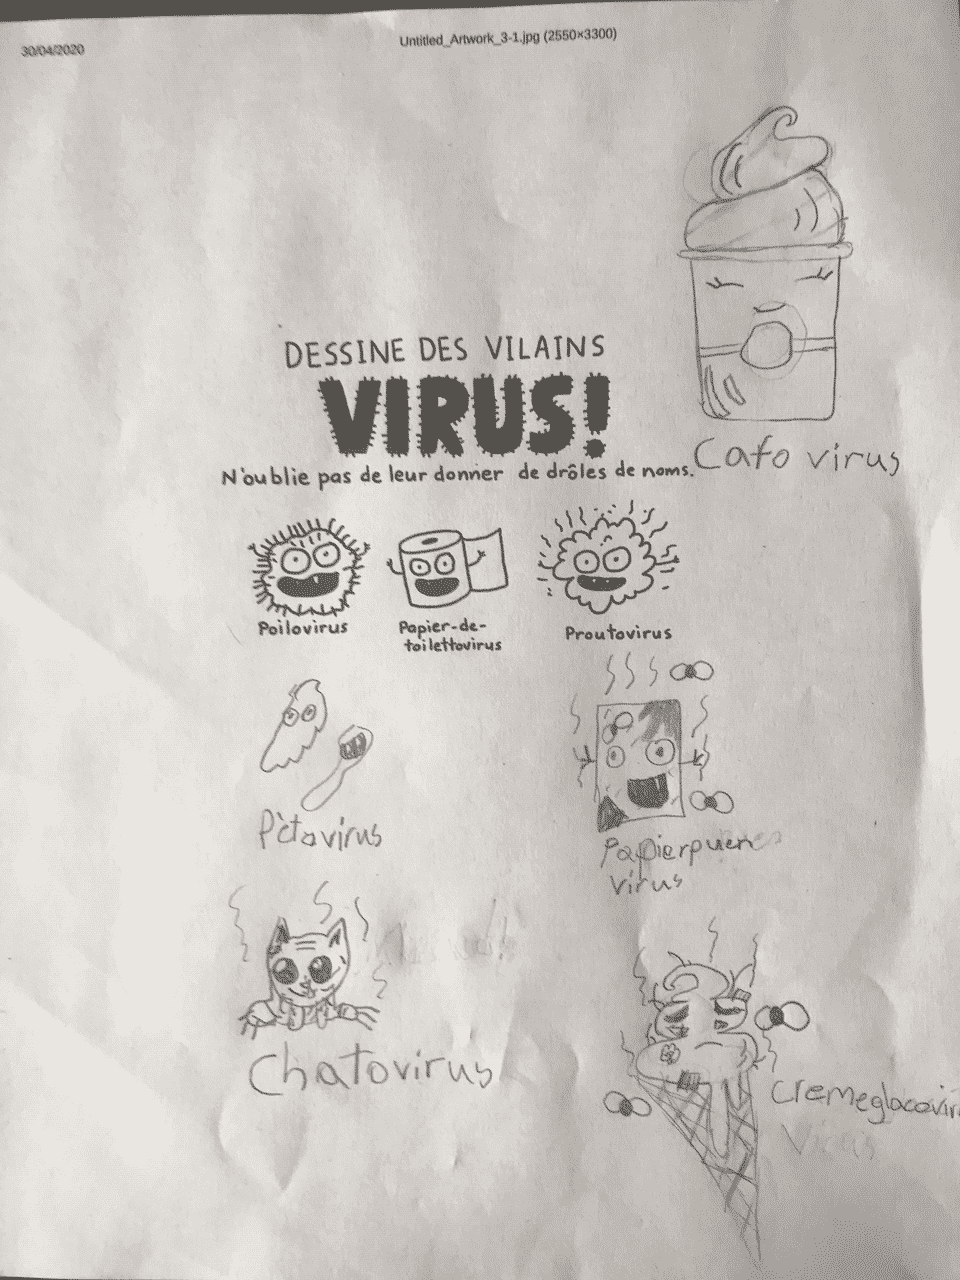 30/04/2020
Untitled_Artwork_3-1.jpg (2550×3300)
DESSINE DES VILAINS
VIRUS!
N'oublie pas de leur donner de drôles de noms.
Cafo virus
Poilovirus
Papier-de-
toilettovirus
Proutovirus
Pètovirus
Papierpuen
virus
Chatovirus
Cremeglacovir
Virus